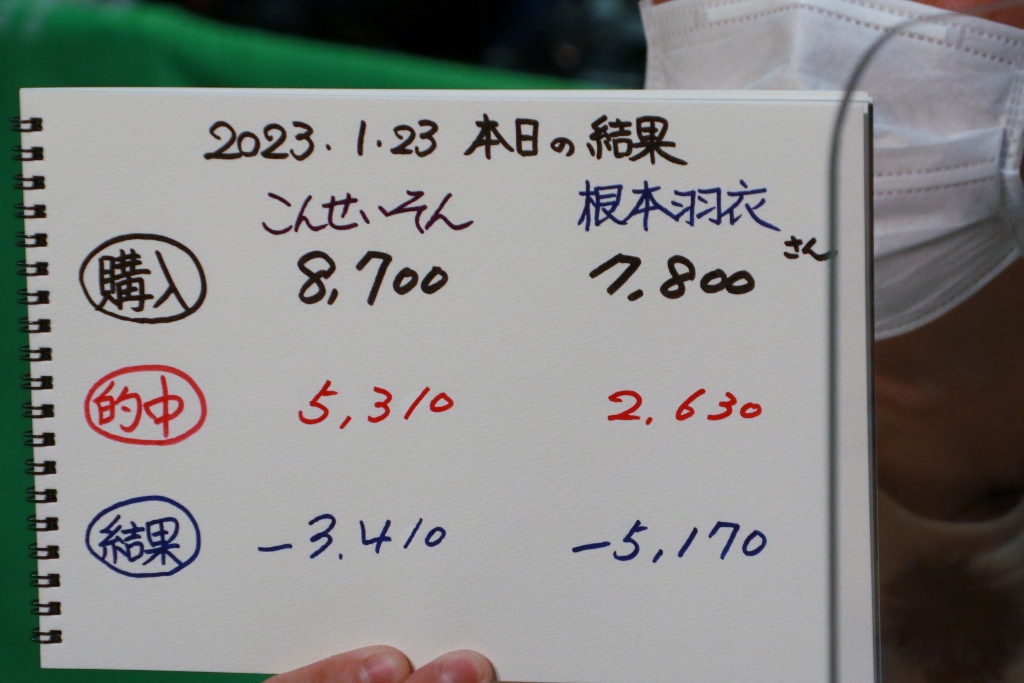 2023.1.23 本日の結果
こんせいそん 根本羽衣さん
購入 8,700 7.800
的中 5,310 2.630
結果 -3.410 -5,170